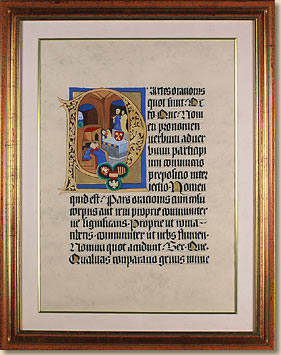 Partes orationis
quot sunt: Oc
to Que: Nom
en pronomen
verbum adver
bium particip
ium coniunctio
prepositio inter
iectio Nomen
quid est: Pars orationis cum casu
corpus aut rem proprie communiter
ve significans Proprie ut roma
tiberis communiter ut urbs flumen
Nomini quot accidunt: Sex Que
Qualitas comparatio genus nume